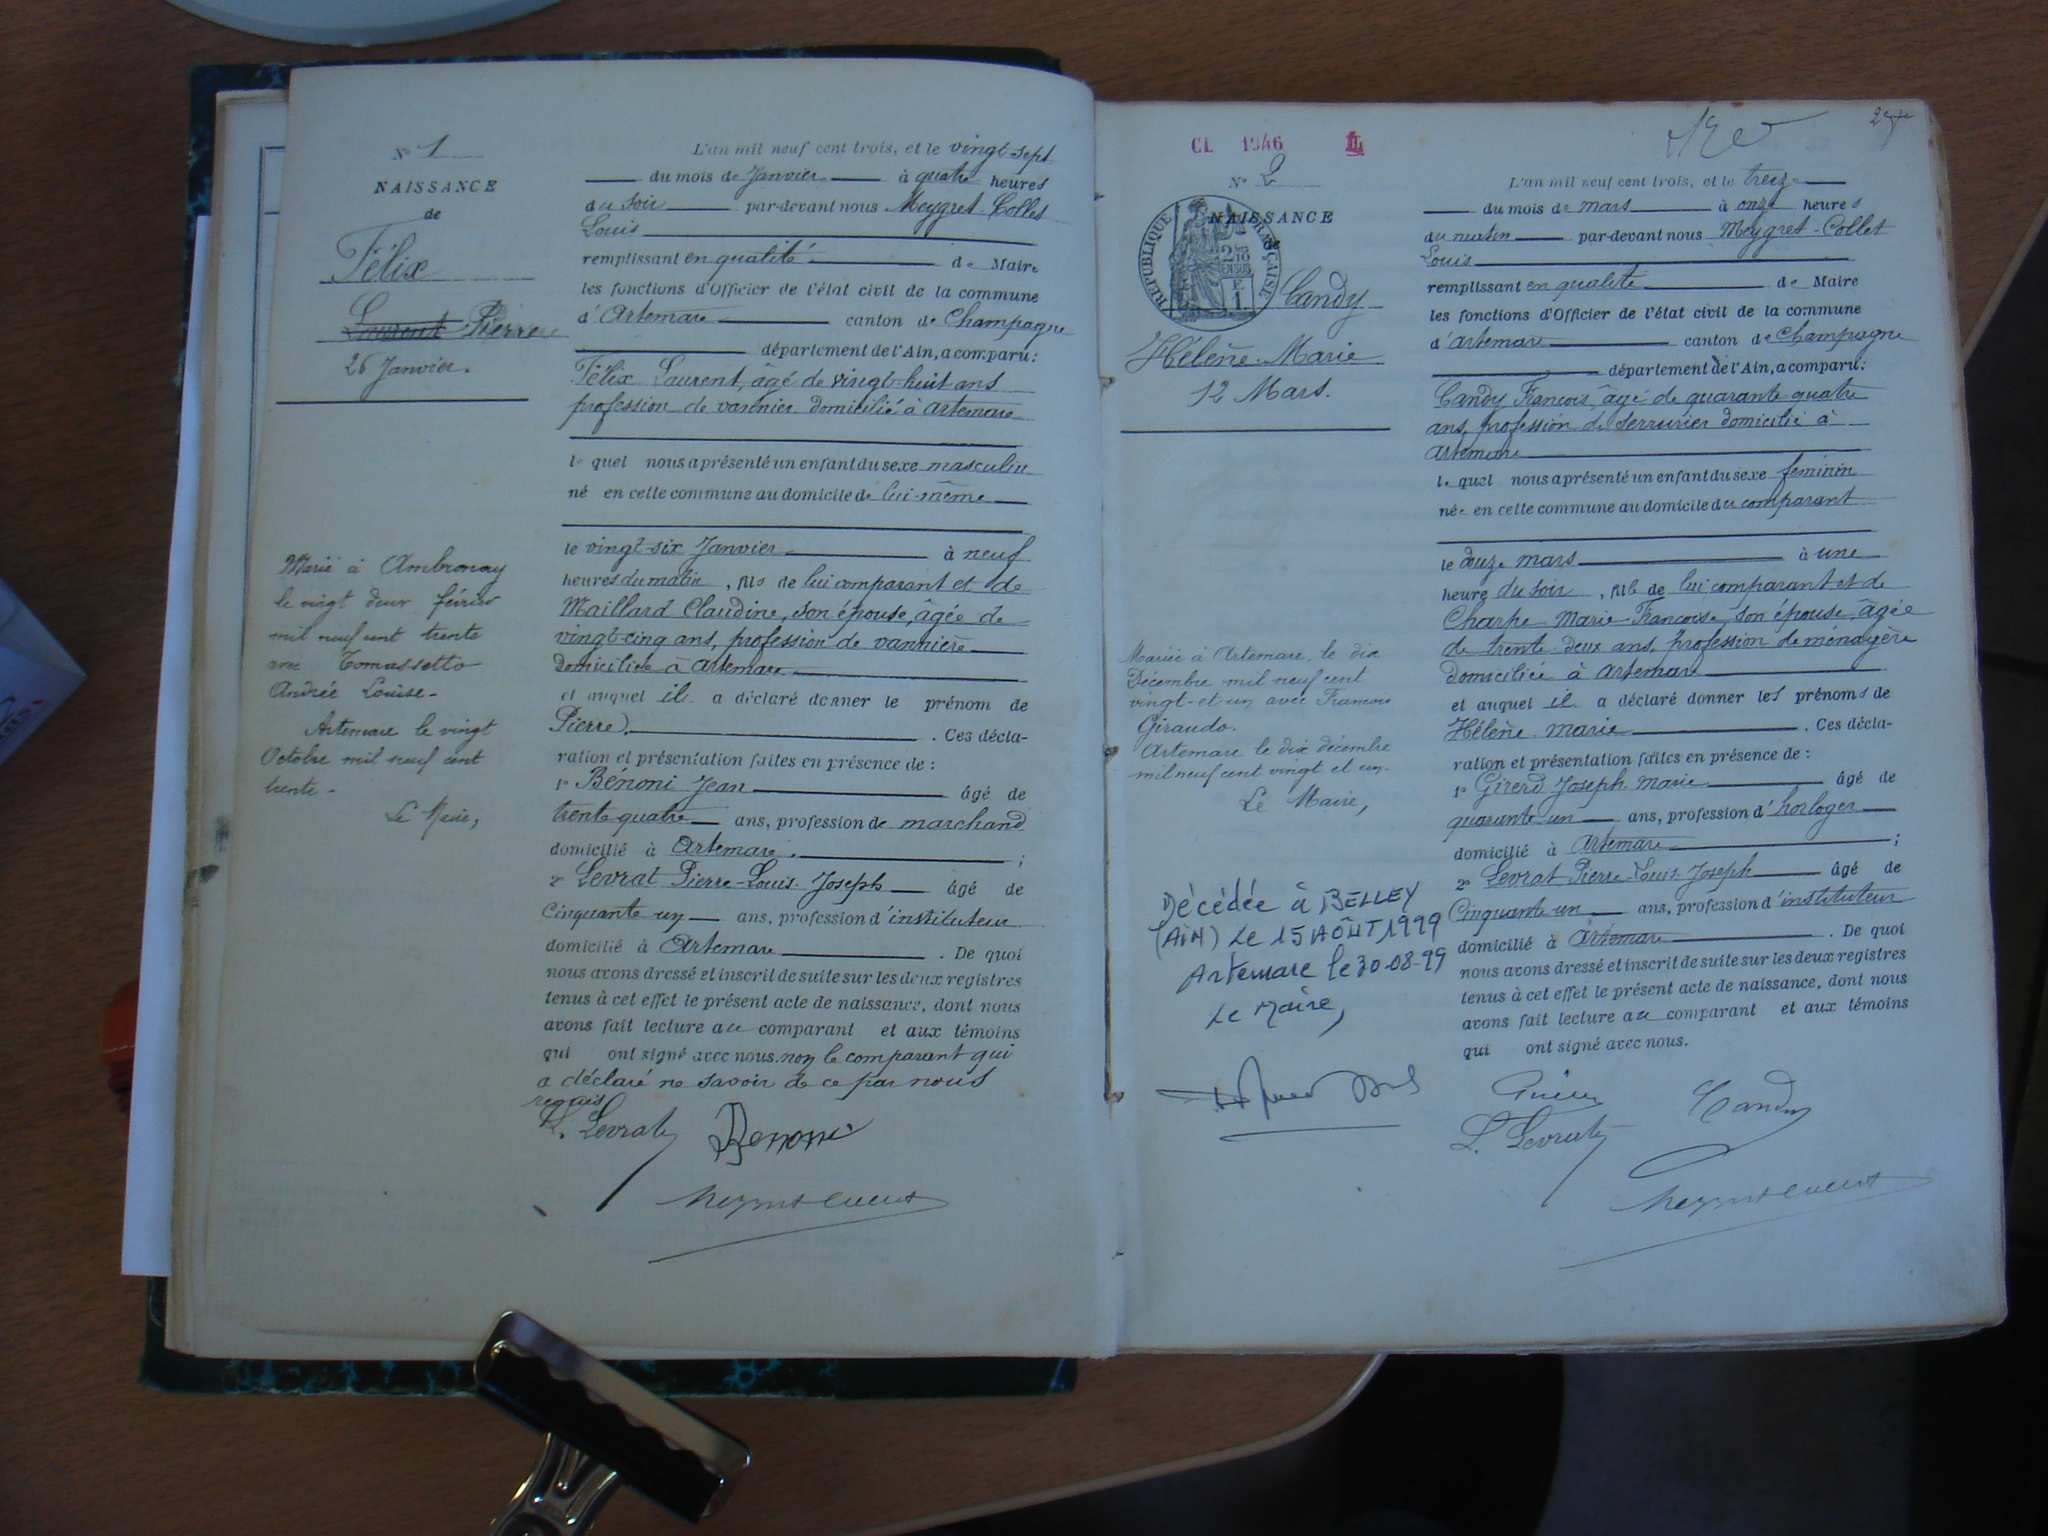 N° 1
NAISSANCE
de
Félix
Laurent Pierre
26 Janvier.
Marié à Ambronay
le vingt deux février
mil neuf cent trente
avec Tomassetto
Andrée Louise-
Artemare le vingt
Octobre mil neuf cent
trente-
Le Maire,
L'an mil neuf cent trois, et le vingt-sept
du mois de Janvier à quatre heures
du soir par-devant nous Meygret-Collet
Louis
remplissant en qualité de Maire
les fonctions d'Officier de l'état civil de la commune
d'Artemare canton de Champagne
département de l'Ain, a comparu:
Félix Laurent, âgé de vingt-huit ans
profession de vannier domicilié à Artemare
lequel nous a présenté un enfant du sexe masculin
né en cette commune au domicile de lui-même
le vingt-six Janvier à neuf
heures du matin, fils de lui comparant et de
Maillard Claudine, son épouse, âgée de
vingt-cinq ans, profession de vannière
domiciliée à Artemare
et auquel il a déclaré donner le prénom de
Pierre. Ces décla-
ration et présentation faites en présence de:
1° Bénoni Jean âgé de
trente-quatre ans, profession de marchand
domicilié à Artemare. ;
2° Levrat Pierre-Louis-Joseph âgé de
Cinquante-un ans, profession d'instituteur
domicilié à Artemare. De quoi
nous avons dressé et inscrit de suite sur les deux registres
tenus à cet effet le présent acte de naissance, dont nous
avons fait lecture au comparant et aux témoins
qui ont signé avec nous. non le comparant qui
a déclaré ne savoir de ce par nous
requis
L. Levrat Benoni
CL 1946
N° 2
NAISSANCE
RÉPUBLIQUE FRANÇAISE
Candy
Hélène-Marie
12 Mars.
Mariée à Artemare, le dix
Décembre mil neuf cent
vingt-et un avec François
Giraudo.
Artemare le dix décembre
mil neuf cent vingt et un.
Le Maire,
Décédée à BELLEY
(AIN) Le 15 AÔUT 1999
Artemare le 30-08-99
Le Maire,
L'an mil neuf cent trois, et le treize
du mois de mars à onze heures
du matin par-devant nous Meygret-Collet
Louis
remplissant en qualité de Maire
les fonctions d'Officier de l'état civil de la commune
d'Artemare canton de Champagne
département de l'Ain, a comparu:
Candy François, âgé de quarante quatre
ans, profession de serrurier domicilié à
Artemare
lequel nous a présenté un enfant du sexe féminin
née en cette commune au domicile du comparant
le douze mars à une
heure du soir, fille de lui comparant et de
Charpe Marie-Françoise, son épouse, âgée
de trente-deux ans, profession de menagère
domiciliée à Artemare
et auquel il a déclaré donner les prénoms de
Hélène-Marie. Ces décla-
ration et présentation faites en présence de:
1° Girerd Joseph-Marie âgé de
quarante-un ans, profession d'horloger
domicilié à Artemare ;
2° Levrat Pierre-Louis-Joseph âgé de
Cinquante-un ans, profession d'instituteur
domicilié à Artemare. De quoi
nous avons dressé et inscrit de suite sur les deux registres
tenus à cet effet le présent acte de naissance, dont nous
avons fait lecture au comparant et aux témoins
qui ont signé avec nous.
Candy
L. Levrat